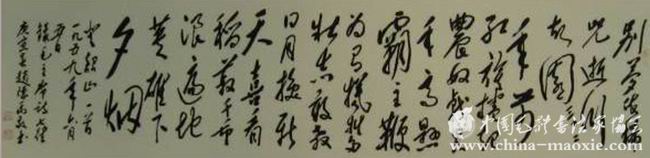 别梦依稀
咒逝川
故園三十二
年前
红旗捲起
農奴戟黑
手高悬
霸主鞭
为有犧牲多
壮志敢教
日月换新
天喜看
稻菽千重
浪遍地
英雄下
夕烟
韶山一首
一九五九年六月
毛主席诗
中国毛体书法家协会
www.maoxie.com